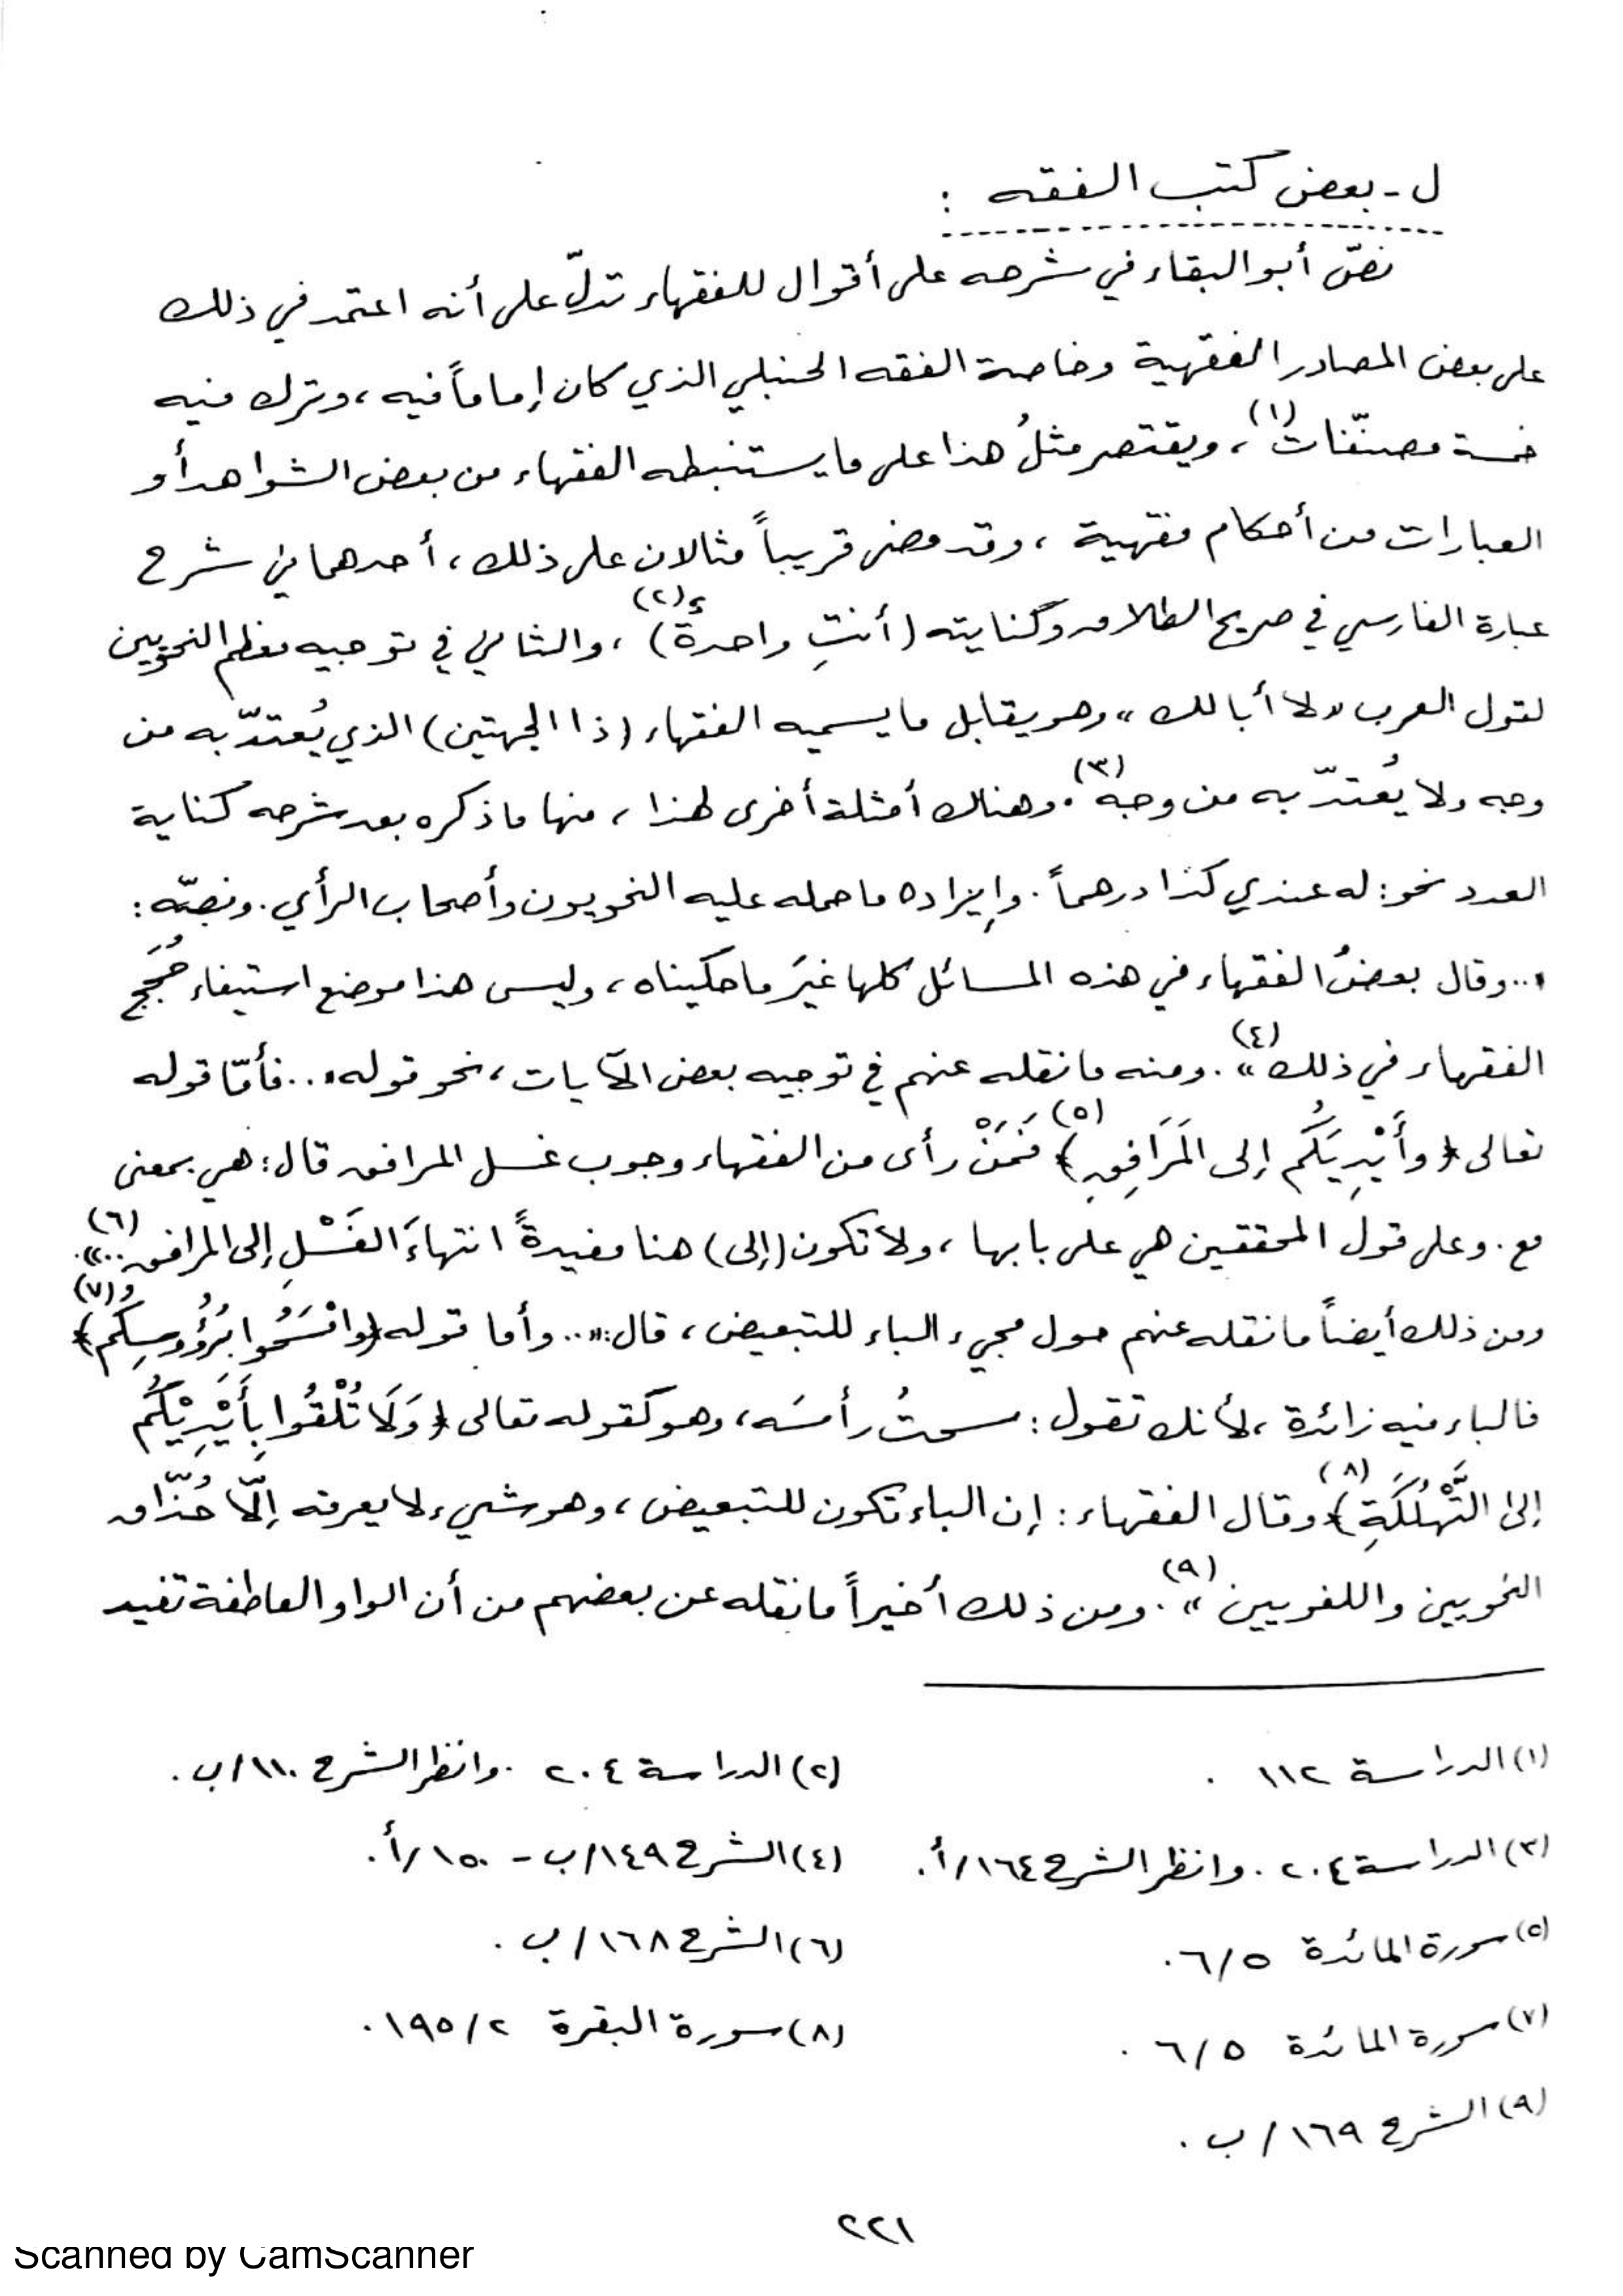 ل - بعض كتب الفقه :
نصّ أبو البقاء في شرحه على أقوال للفقهاء تدلّ على أنه اعتمد في ذلك
على بعض المصادر الفقهية وخاصة الفقه الحنبلي الذي كان إماماً فيه ، وترك فيه
خمسة مصنّفاتٍ (١) ، ويقتصر مثلُ هذا على ما يستنبطه الفقهاء من بعض الشواهد أو
العبارات من أحكام فقهية ، وقد مضى قريباً مثالان على ذلك ، أحدهما في شرح
عبارة الفارسي في صريح الطلاق وكنايته ( أنتِ واحدةٌ ) (٢) ، والثاني في توجيه معظم النحويين
لقول العرب « لا أبا لك » وهو يقابل ما يسميه الفقهاء ( ذا الجهتين ) الذي يُعتدّ به من
وجه ولا يُعتدّ به من وجه (٣) . وهناك أمثلة أخرى لهذا ، منها ما ذكره بعد شرحه كناية
العدد نحو : له عندي كذا درهماً . وإيراده ما حمله عليه النحويون وأصحاب الرأي . ونصّه :
« .. وقال بعضُ الفقهاء في هذه المسائل كلها غيرَ ما حكيناه ، وليس هذا موضع استيفاء حُجَج
الفقهاء في ذلك » (٤) . ومنه ما نقله عنهم في توجيه بعض الآيات ، نحو قوله « .. فأمّا قوله
تعالى ﴿ وأَيْدِيَكُم إلى المَرَافِقِ ﴾ (٥) فَمَنْ رأى من الفقهاء وجوب غسل المرافق قال : هي بمعنى
مع . وعلى قول المحققين هي على بابها ، ولا تكون ( إلى ) هنا مفيدةً انتهاءَ الغَسْلِ إلى المرافق .. » (٦) .
ومن ذلك أيضاً ما نقله عنهم حول مجيء الباء للتبعيض ، قال : « .. وأما قوله ﴿ وامْسَحُوا بِرُؤُوسِكُم ﴾ (٧)
فالباء فيه زائدة ، لأنك تقول : مسحتُ رأسَه ، وهو كقوله تعالى ﴿ وَلَا تُلْقُوا بِأَيْدِيْكُم
إلى التَّهْلُكَةِ ﴾ (٨) وقال الفقهاء : إن الباء تكون للتبعيض ، وهو شيء لا يعرفه إلّا حُذّاق
النحويين واللغويين » (٩) . ومن ذلك أخيراً ما نقله عن بعضهم من أن الواو العاطفة تفيد
(١) الدراسة ١١٢ .
(٢) الدراسة ٢٠٤ . وانظر الشرح ١١٠/ب .
(٣) الدراسة ٢٠٤ . وانظر الشرح ١٦٤/أ .
(٤) الشرح ١٤٩/ب - ١٥٠/أ .
(٥) سورة المائدة ٦/٥ .
(٦) الشرح ١٦٨/ب .
(٧) سورة المائدة ٦/٥ .
(٨) سورة البقرة ١٩٥/٢ .
(٩) الشرح ١٦٩/ب .
٢٢١
Scanned by CamScanner